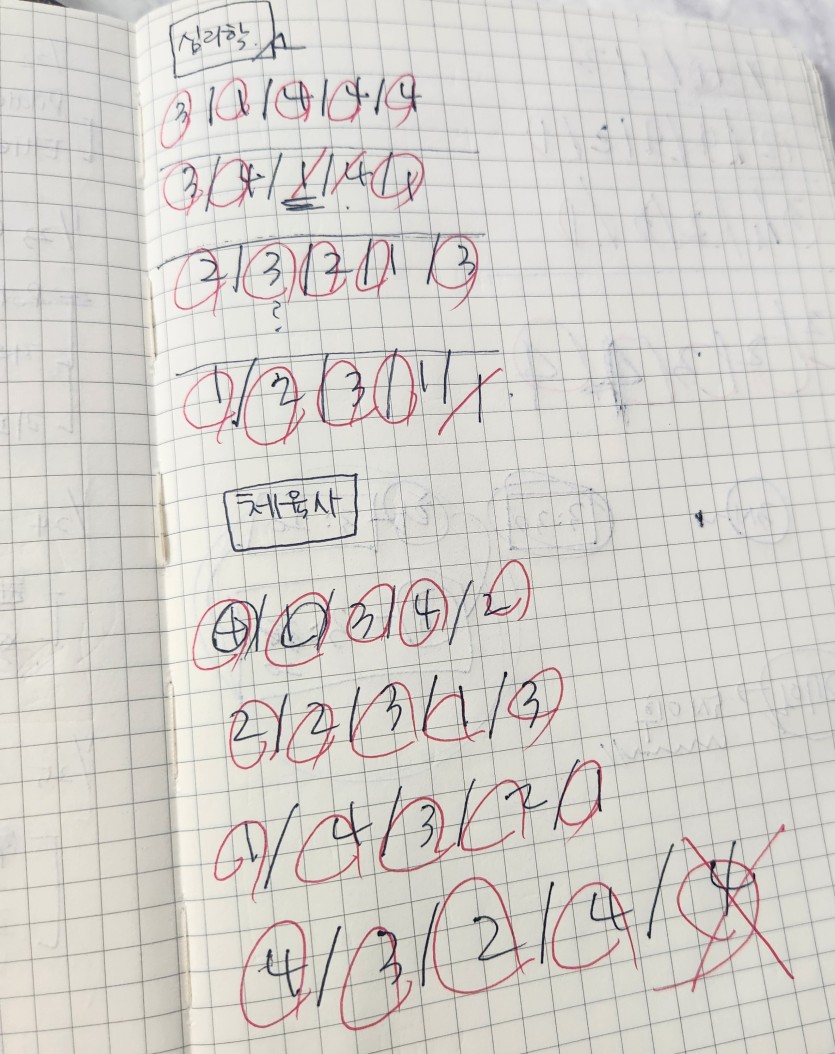 심리학
3/1/4/4/4
3/4/1/4/1
2/3/2/1/3
?
1/2/3/1/1
체육사
4/1/3/4/2
2/2/3/1/3
1/4/3/2/1
4/3/2/4/4